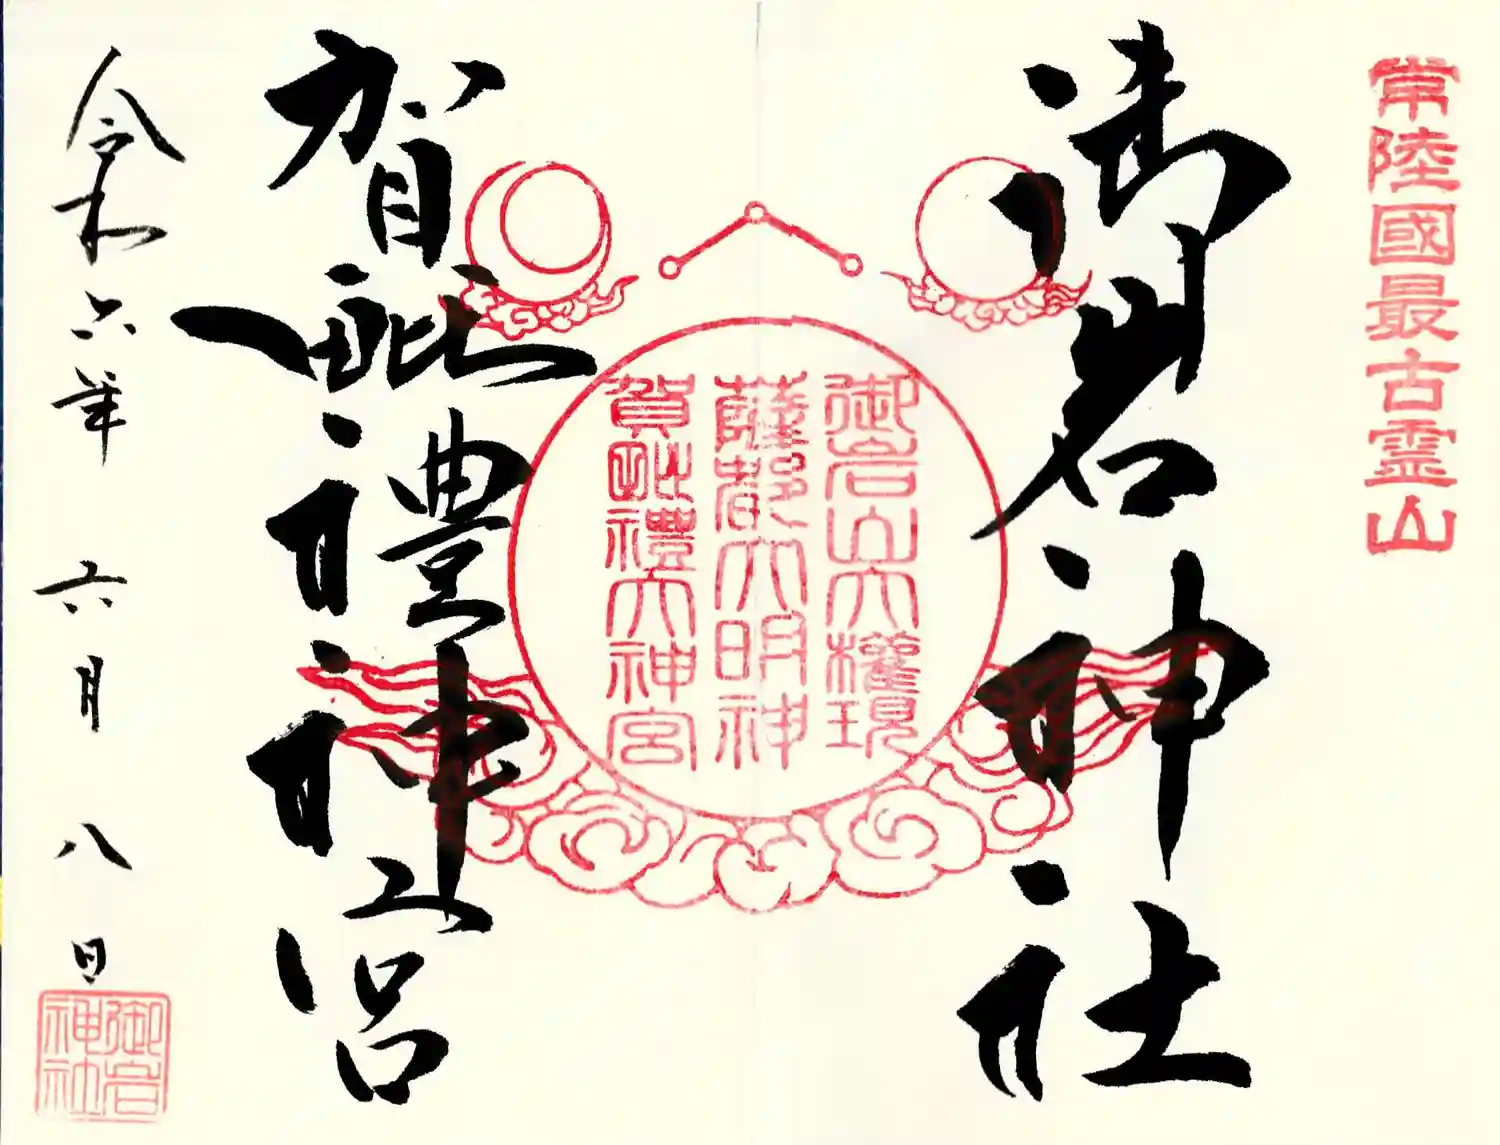 常陸國最古霊山
御岩神社
御岩山大權現
薩都大明神
賀毗禮大神宮
賀毗禮神宮
令和六年 六月 八日
御岩神社